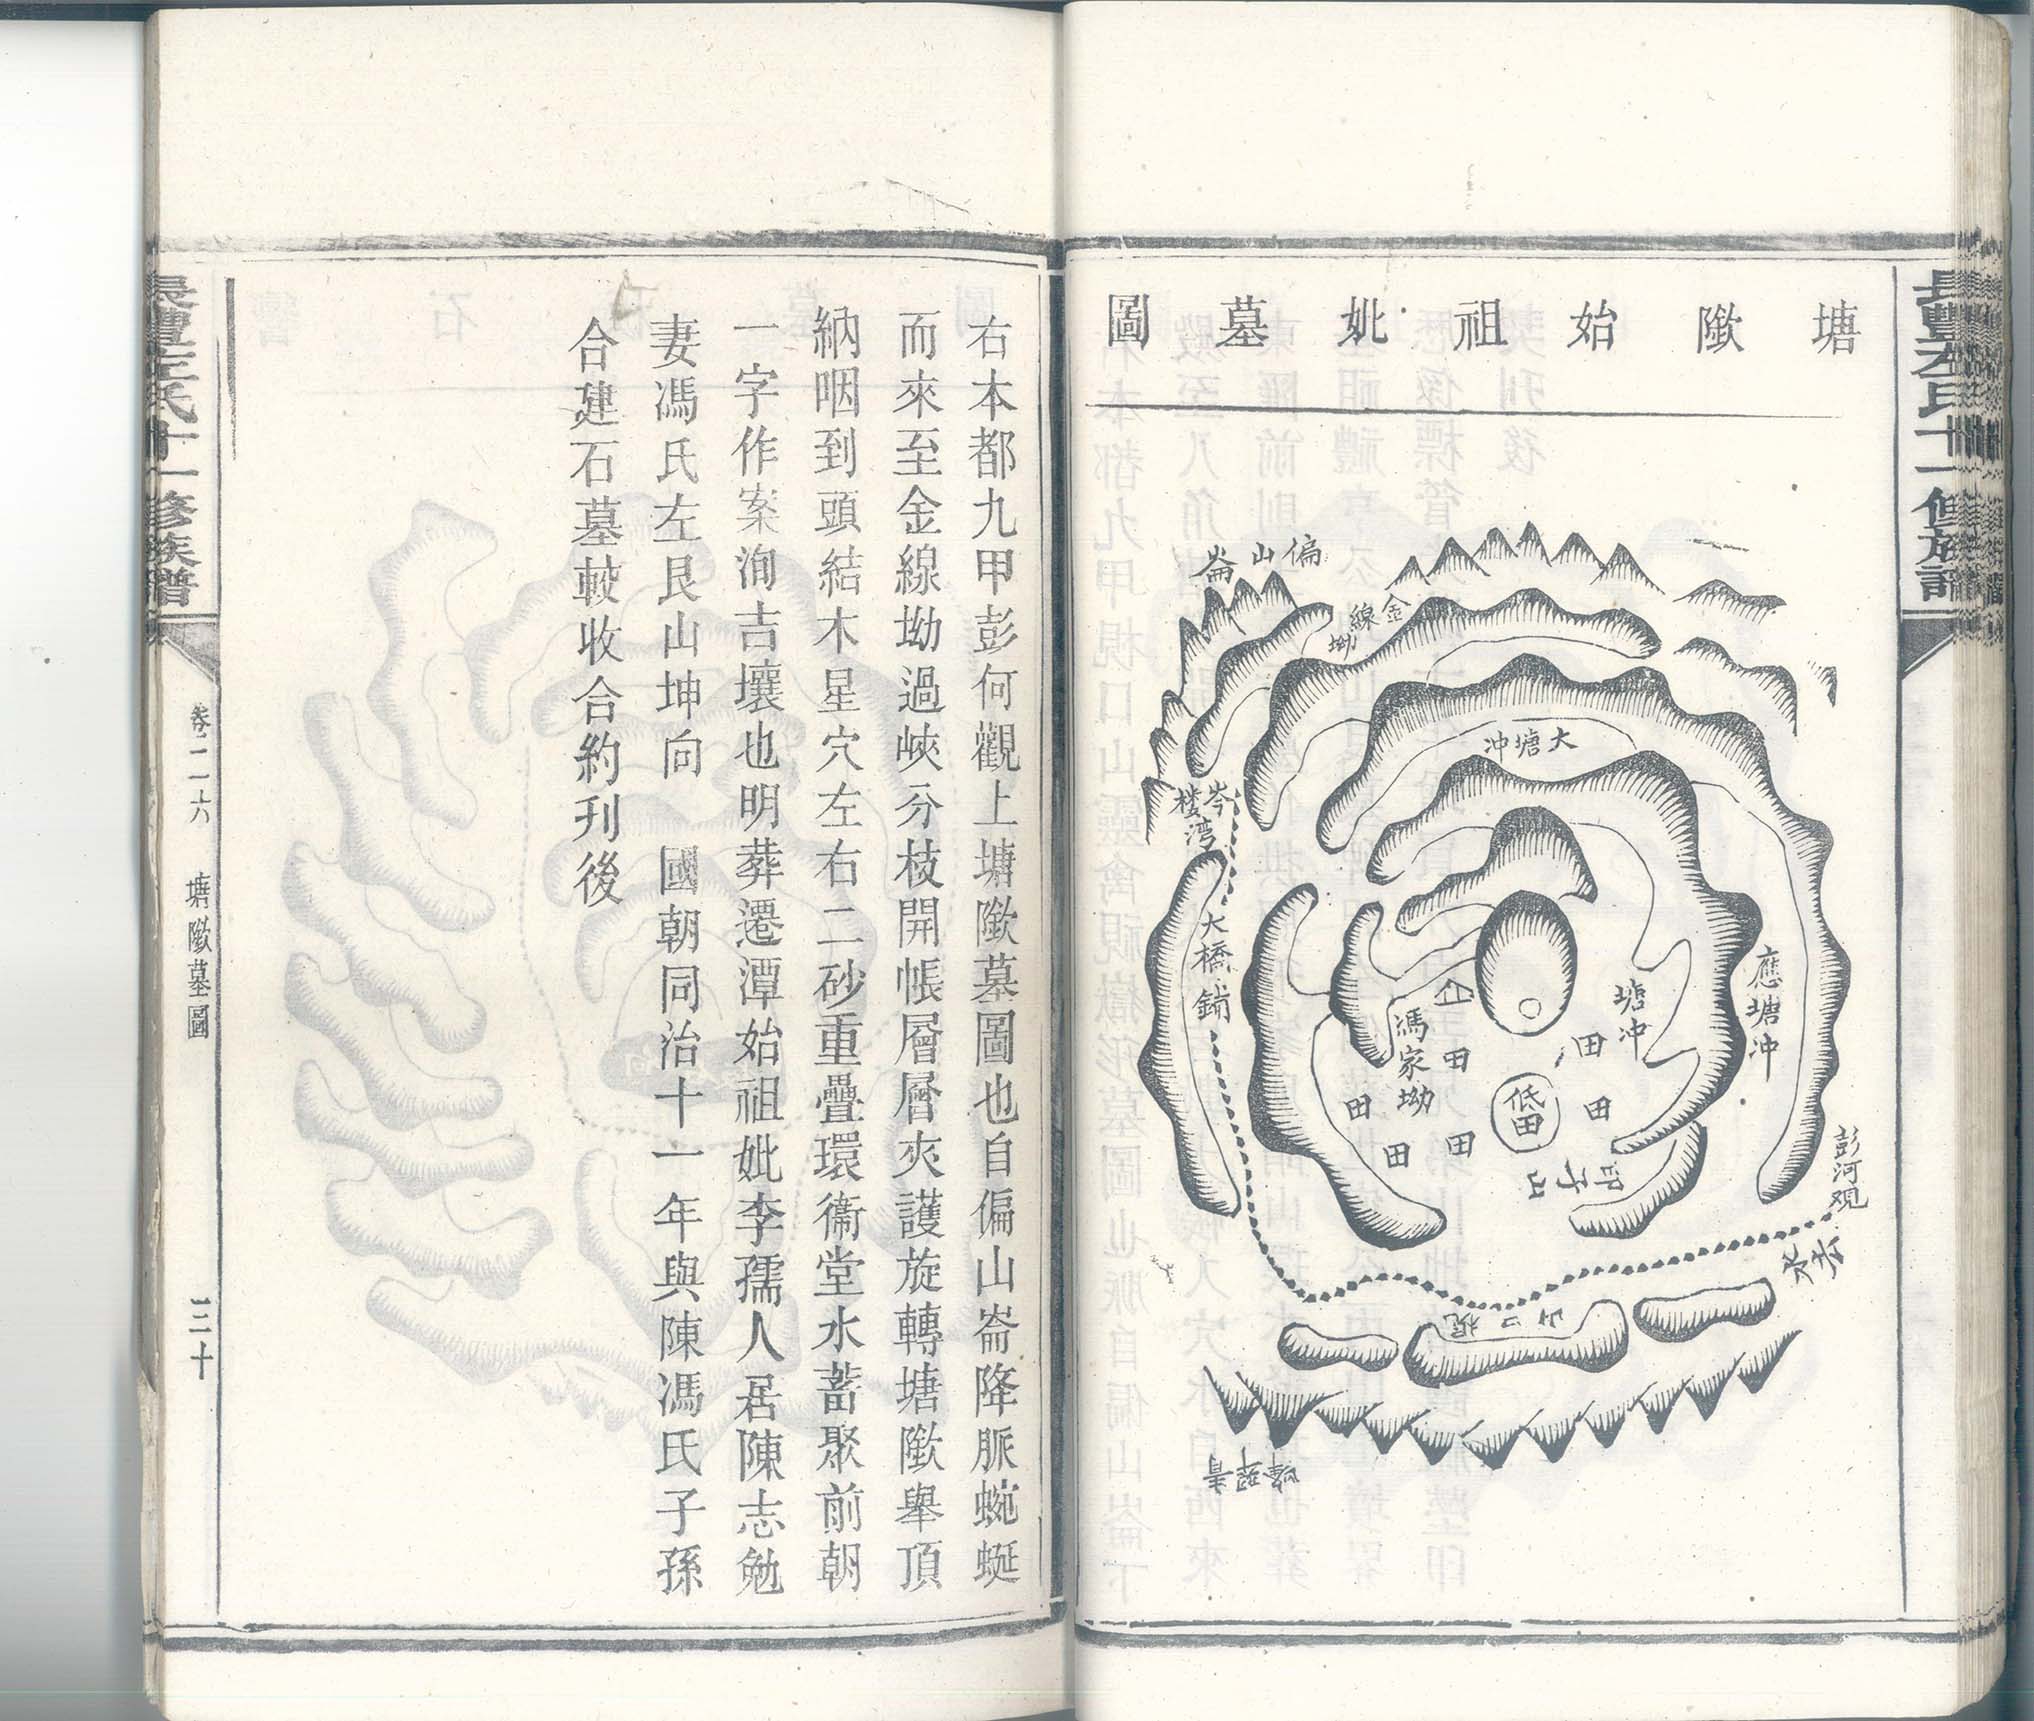 塘隞始祖妣墓圖
偏山崙
金線坳
大塘冲
岑楼湾
大橋鋪
馮家坳
塘冲
應塘冲
田
田
田
田
田
田
低田
彭河观
去水
枧口山
青翠峰
右本都九甲彭何觀上塘隞墓圖也自偏山崙降脈蜿蜒
而來至金線坳過峽分枝開帳層層夾護旋轉塘隞舉頂
納咽到頭結木星穴左右二砂重疊環衞堂水蓄聚前朝
一字作案洵吉壤也明葬遷潭始祖妣李孺人居陳志勉
妻馮氏左艮山坤向　國朝同治十一年與陳馮氏子孫
合建石墓較收合約刊後
長豐左氏十一修族譜
卷二六　塘隞墓圖
三十